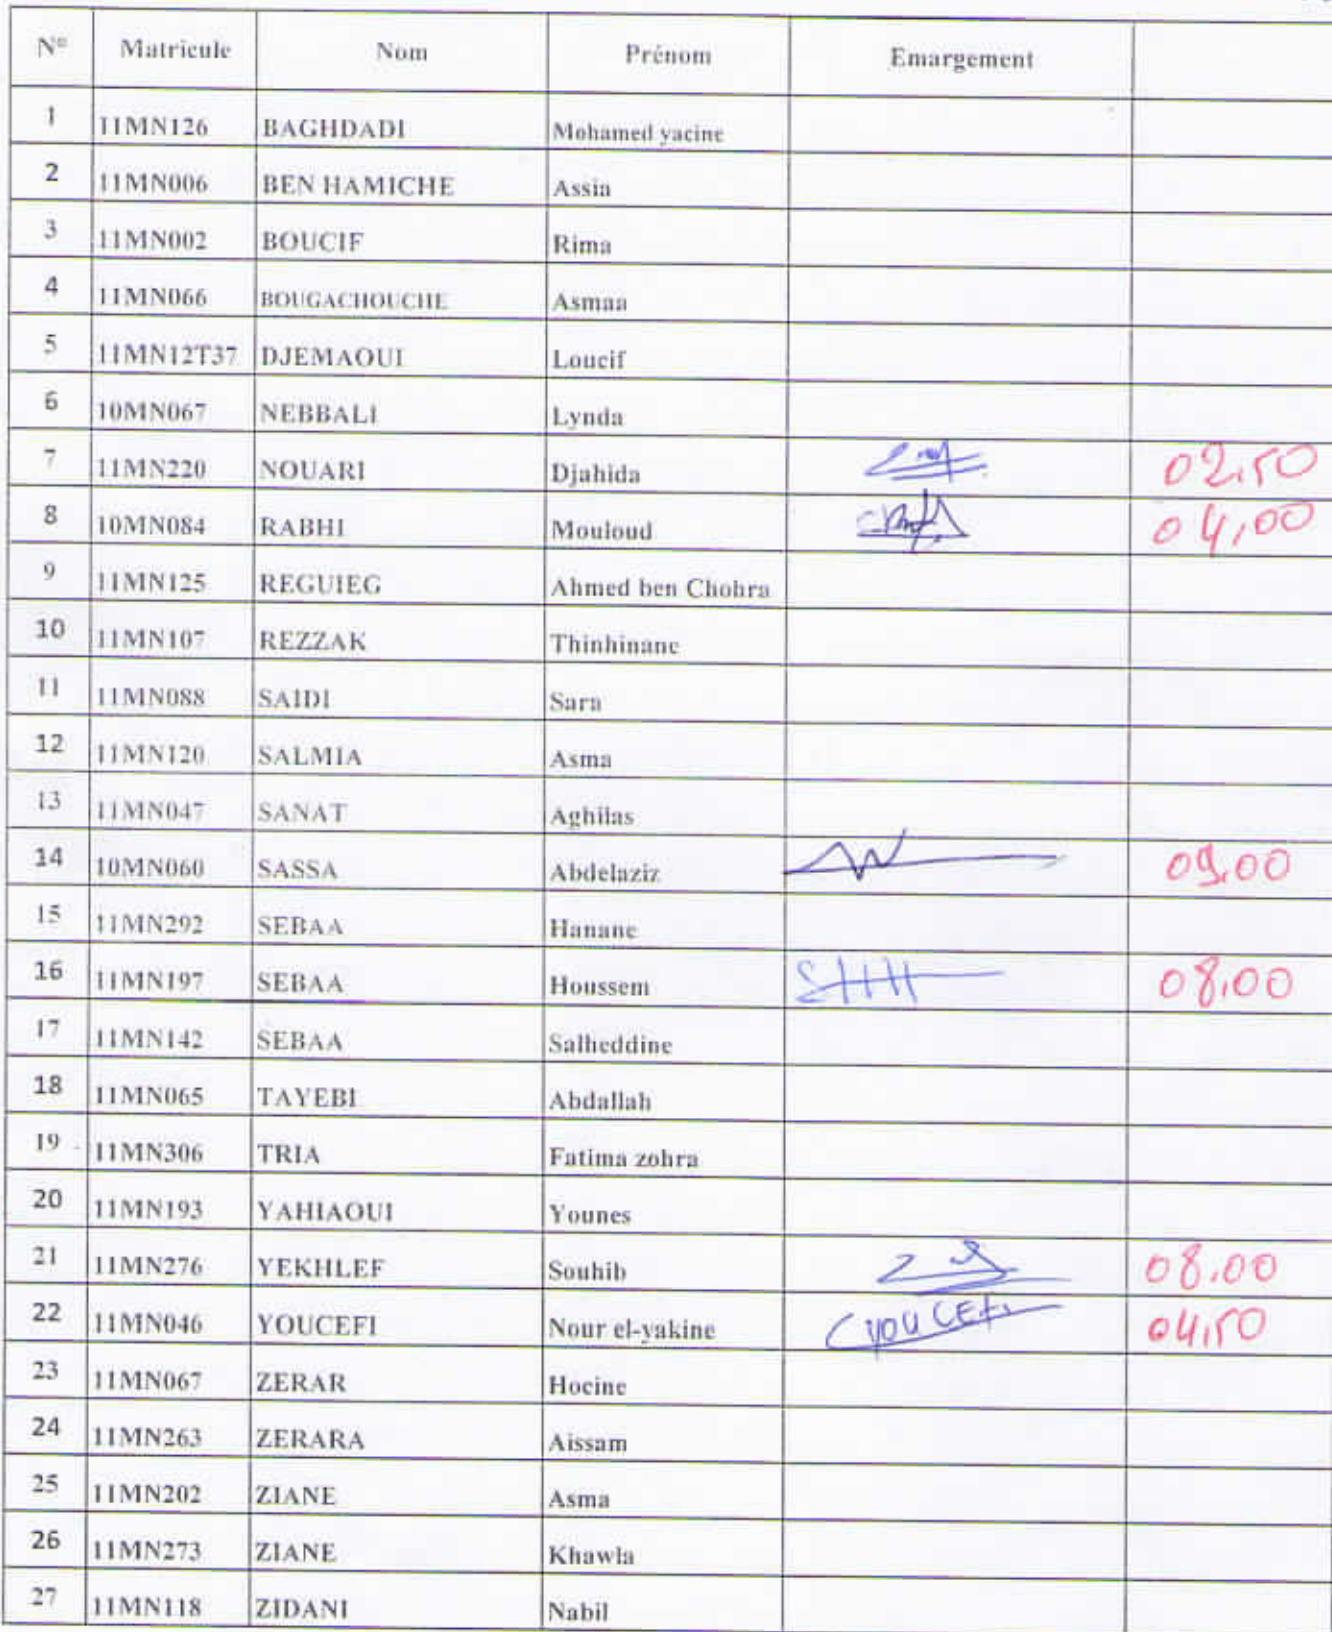 N° Matricule Nom Prénom Emargement
1 11MN126 BAGHDADI Mohamed yacine
2 11MN006 BEN HAMICHE Assia
3 11MN002 BOUCIF Rima
4 11MN066 BOUGACHOUCHE Asmaa
5 11MN12T37 DJEMAOUI Loucif
6 10MN067 NEBBALI Lynda
7 11MN220 NOUARI Djahida 02,50
8 10MN084 RABHI Mouloud 04,00
9 11MN125 REGUIEG Ahmed ben Chohra
10 11MN107 REZZAK Thinhinane
11 11MN088 SAIDI Sara
12 11MN120 SALMIA Asma
13 11MN047 SANAT Aghilas
14 10MN060 SASSA Abdelaziz 09,00
15 11MN292 SEBAA Hanane
16 11MN197 SEBAA Houssem 08,00
17 11MN142 SEBAA Salheddine
18 11MN065 TAYEBI Abdallah
19 11MN306 TRIA Fatima zohra
20 11MN193 YAHIAOUI Younes
21 11MN276 YEKHLEF Souhib 08,00
22 11MN046 YOUCEFI Nour el-yakine 04,50
23 11MN067 ZERAR Hocine
24 11MN263 ZERARA Aissam
25 11MN202 ZIANE Asma
26 11MN273 ZIANE Khawla
27 11MN118 ZIDANI Nabil